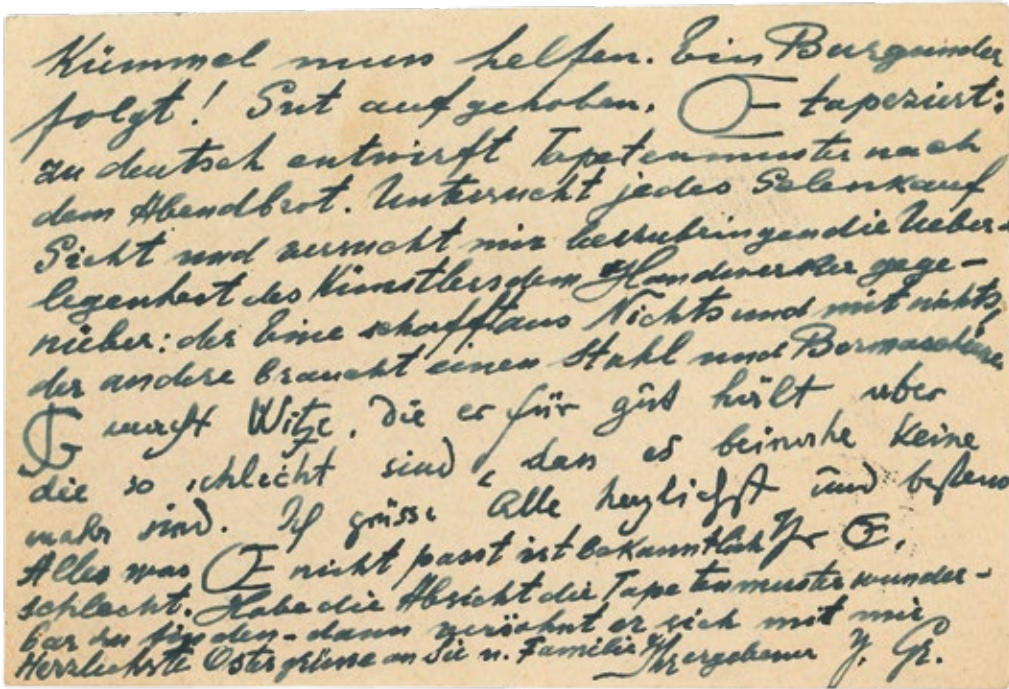 Kümmel muss helfen. Ein Burgunder
folgt! Gut aufgehoben. Œ tapeziert:
zu deutsch entwirft Tapetenmuster nach
dem Abendbrot. Untersucht jedes Selenkauf
Sicht und versucht mir beizubringen die Ueber-
legenheit des Künstlers dem Handwerker gege-
nüber: der Eine schafft aus Nichts und mit nichts,
der andere braucht einen Stuhl und Bormaschine
macht Witze, die er für gut hält aber
die so schlecht sind, dass es beinahe keine
mehr sind. Ich grüsse Alle herzlichst und bestens
Alles was Œ nicht passt ist bekanntlich Ihr Œ.
schlecht. Habe die Absicht die Tapetenmuster wunder-
bar zu finden - dann versöhnt er sich mit mir
Herzlichste Ostergrüsse an Sie u. Familie Ihr ergebener J. Gr.